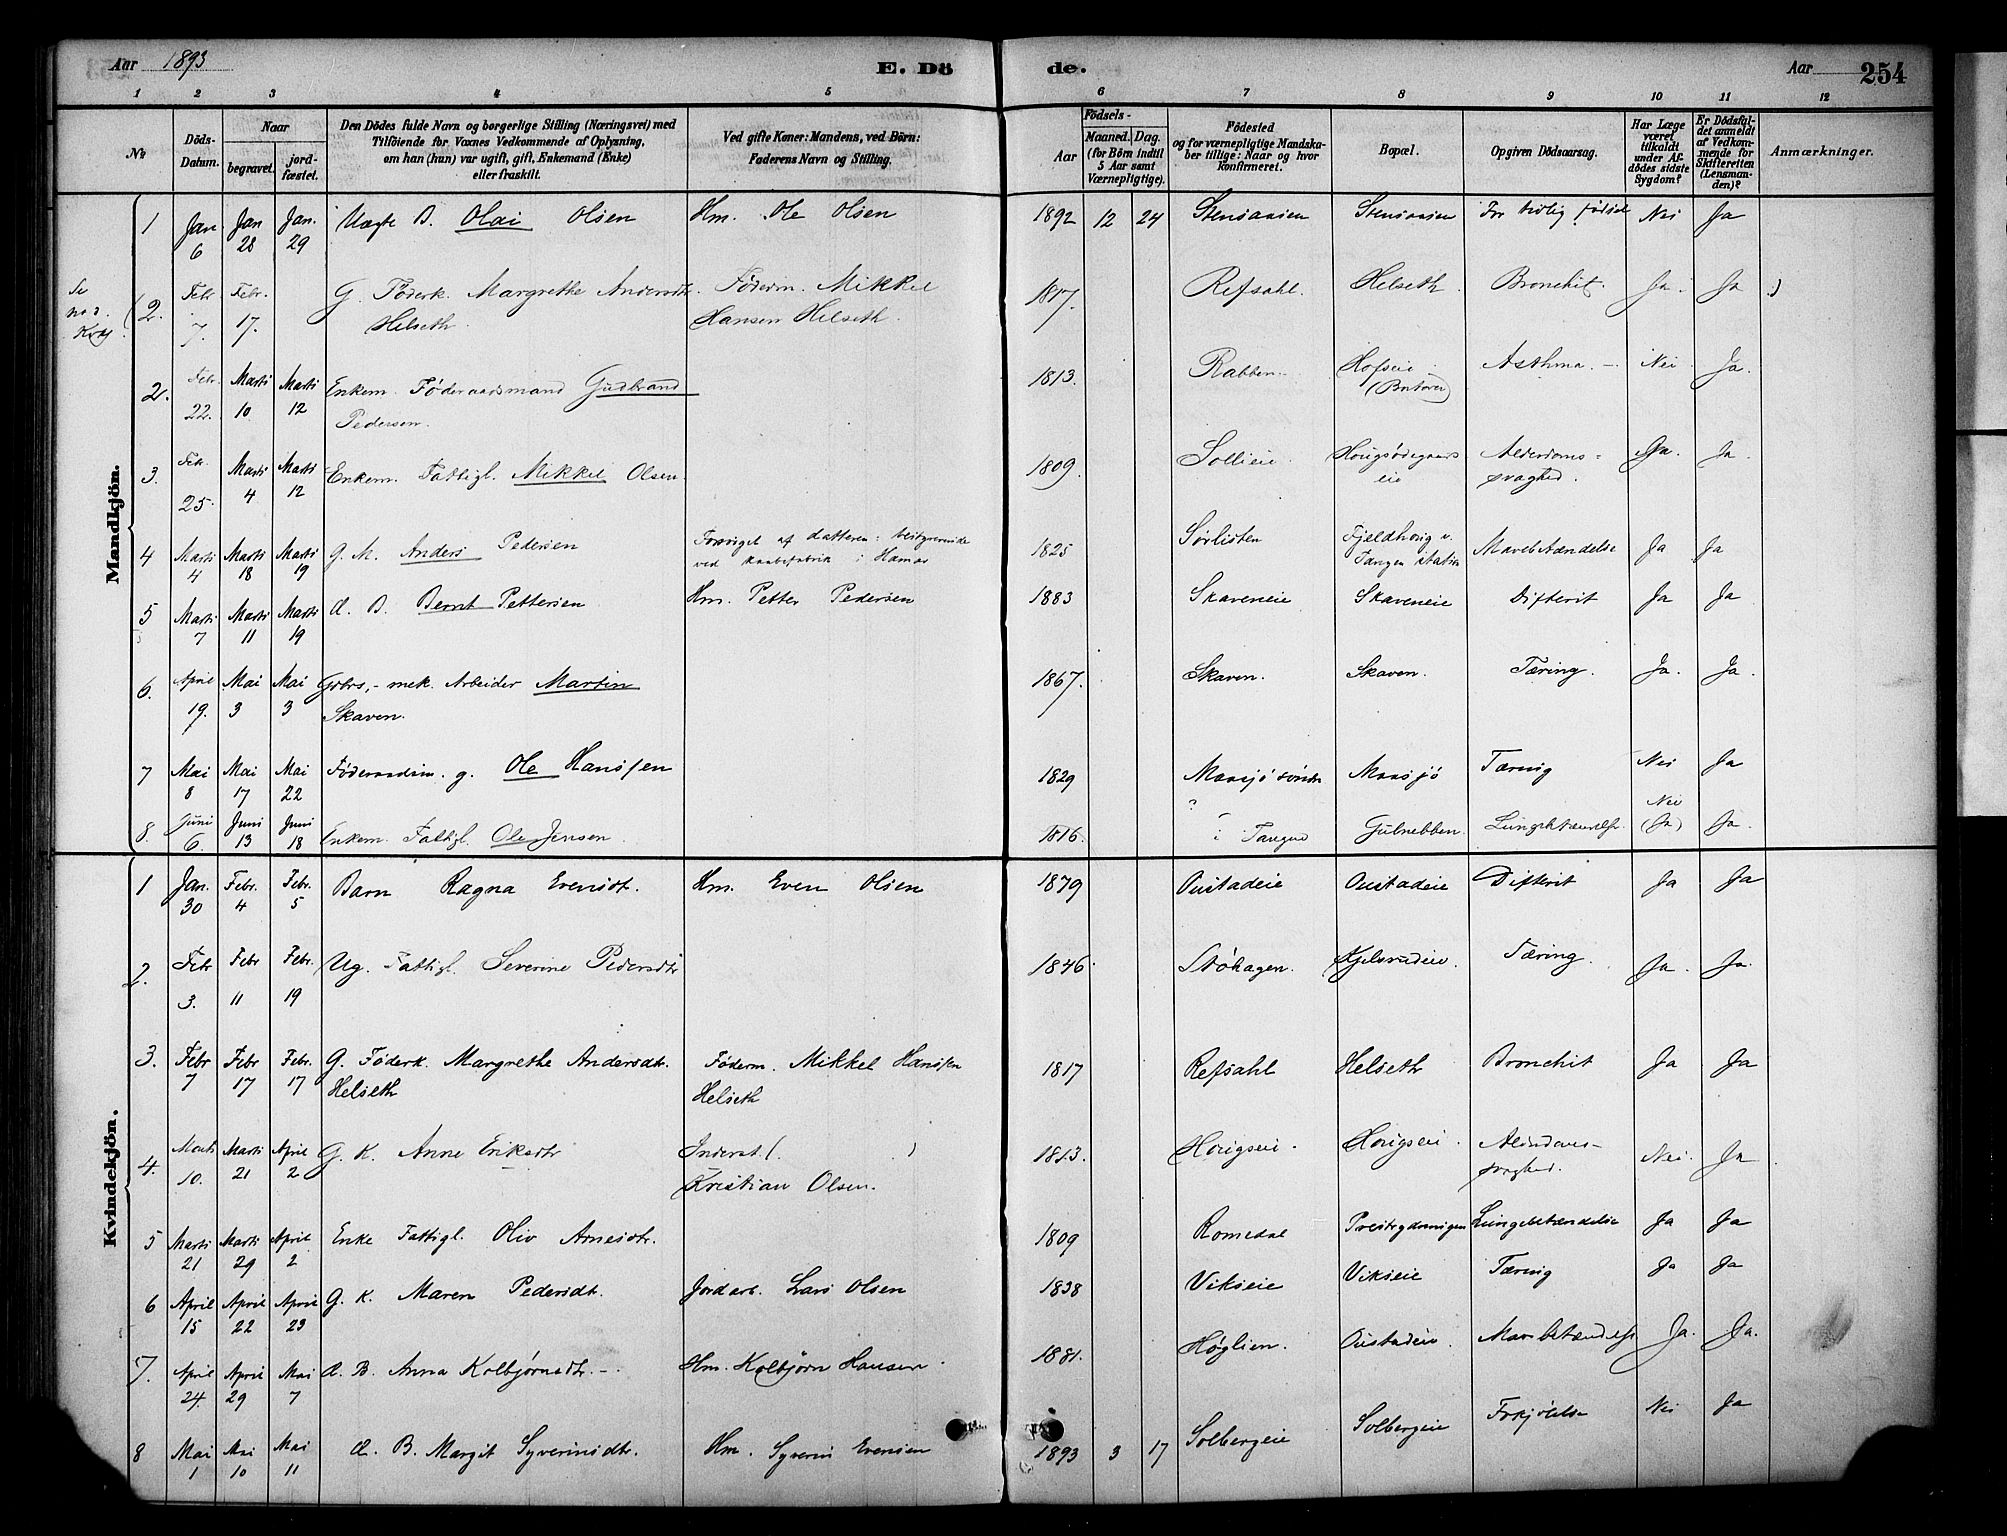 Aar 1893
E. Dö
de.
Aar
254
1 2 3 4 5 6 7 8 9 10 11 12
No
Döds-Datum.
Naar
begravet.
jord-fæstet.
Den Dödes fulde Navn og borgerlige Stilling (Næringsvei) med
Tilföiende for Voxnes Vedkommende af Oplysning,
om han (hun) var ugift, gift, Enkemand (Enke)
eller fraskilt.
Ved gifte Koner: Mandens, ved Börn:
Faderens Navn og Stilling.
Födsels-
Aar
Maaned. Dag.
(for Börn indtil
5 Aar samt
Værnepligtige).
Födested
og for værnepligtige Mandska-
ber tillige: Naar og hvor
konfirmeret.
Bopæl.
Opgiven Dödsaarsag.
Har Læge
været
tilkaldt
under Af-
dödes sidste
Sygdom?
Er Dödsfal-
det anmeldt
af Vedkom-
mende for
Skifteretten
(Lensman-
den)?
Anmærkninger.
Mandkjön.
1 Jan 6 Jan 28 Jan. 29 Uægte B. Olai Olsen Hm. Ole Olsen 1892 12 24 Stensaasen Stensaasen For tidlig født Nei Ja
Se no 3. Kvkj.
(2. Febr. 7. Febr. 17. G. Föderk. Margrethe Andersdtr. Föderm. Mikkel 1817. Refsahl. Helseth. Bronchit. Ja. Ja .)
Helseth. Hansen Helseth.
2. Febr. 22. Marts 10 Marts 12 Enkem. Föderaadsmand Gudbrand 1813. Rabben. Hofseie Asthma. Nei Ja.
Pedersen.
3. Febr. 25. Marts 4 Marts 12 Enkem. Fattigl. Mikkel Olsen. 1809. Sollieie. Horigsødegaards Alderdoms- Ja. Ja.
eie svaghed.
4 Marts 4 Marts 18 Marts 19 G. M. Anders Pedersen Forsörget af datteren: bestyrerinde 1825 Sørlisten Fjeldhorig v. Mavebetændelse Ja Ja
ved kaabefabrik i Hamar Tangen station
5 Marts 7 Marts 11 Marts 19 Æ. B. Bernt Pettersen Hm. Petter Pedersen 1883 Skaveneie Skaveneie Difterit Ja Ja
6. April 19. Mai 3 Mai 3 Gbrs,- mek. Arbeider Martin 1867. Skaven. Skaven. Tæring. Ja. Ja.
Skaven.
7 Mai 8 Mai 17 Mai 22 Föderaadsm. g. Ole Hansen 1829 Maasjø søndre Maasjø Tæring Nei Ja
8. Juni 6. Juni 13 Juni 18 Enkem. Fattigl. Ole Jensen. 1816. ? i Tangen Gulnebben. Lungebetændelse. Nei (Ja) Ja.
Kvindekjön.
1 Jan. 30 Febr. 4 Febr. 5 Barn Ragna Evensdt. Hm. Even Olsen 1879 Oustadeie Oustadeie Difterit Ja Ja
2. Febr 3. Febr 11 Febr. 19 Ug. Fattigl. Severine Pedersdtr 1846. Støhagen. Kjelsrudeie. Tæring. Ja. Ja.
3. Febr 7 Febr 17 Febr. 17 G. Föderk. Margrethe Andersdt. Föderm. Mikkel Hansen 1817 Refsahl Helseth Bronchit Ja Ja
Helseth Helseth
4. Marts 10. Marts 21 April 2 G. K. Anne Eriksdtr Inderst. ( ) 1813. Horigseie. Horigseie. Alderdoms- Nei. Ja
Kristian Olsen. svaghed.
5 Marts 21 Marts 29 April 2 Enke Fattigl. Oliv Arnesdtr. 1809 Romedal Prestegdmmigen Lungebetændelse Ja Ja
6 April 15 April 22 April 23 G. K. Maren Pedersdt. Jordarb. Lars Olsen 1838 Vikseie Vikseie Tæring Ja Ja
7. April 24. April 29 Mai 7 Æ. B. Anna Kolbjørnsdtr. Hm. Kolbjørn Hansen. 1881. Høglien. Oustadeie. Mavebetændelse Ja. Ja.
8 Mai 1 Mai 10 Mai 11 Æ. B. Margit Syverinsdtr. Hm. Syverin Evensen 1893 3 17 Solbergeie Solbergeie Forkjølelse Nei Ja